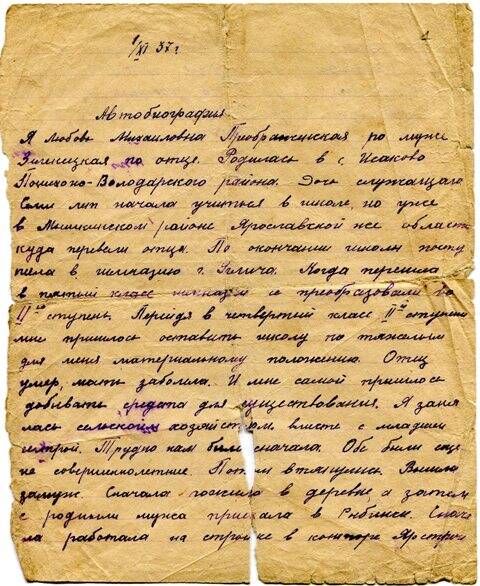 1/XI 37 г
1
Автобиография
Я Любовь Михайловна Преображенская по мужу
по отце. Родилась в с. Исаково
Пошехоно-Володарского района. Дочь служащаго
Семи лет начала учиться в школе, но уже
в Мышкинском районе Ярославской же области
куда перевели отца. По окончании школы посту
пила в гимназию г. Углича. Когда перешла
в пятый класс гимназии ее преобразовали во
IIую ступень. Перейдя в четвертый класс IIой ступени
мне пришлось оставить школу по тяжелым
для меня материальному положению. Отец
умер, мать заболела. И мне самой пришлось
добывать средства для существования. Я заня
лась сельским хозяйством вместе с младшей
сестрой. Трудно нам было сначала. Обе были еще
не совершеннолетние. Потом втянулись. Вышла
замуж. Сначала пожили в деревне, а затем
с родными мужа приехала в Рыбинск. Снача
ла работала на стройке в конторе Ярстрой